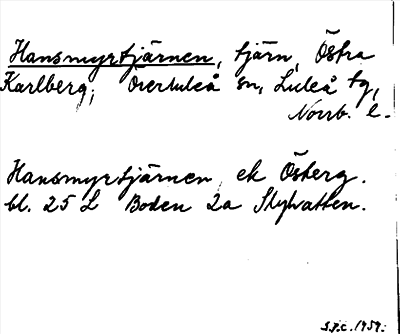 Hansmyrtjärnen, tjärn, Östra
Karlberg, Överluleå sn, Luleå tg,
Norrb. l.
Hansmyrtjärnen, ek Österg.
bl. 25 L Boden 2a
S.F.C. 1959.